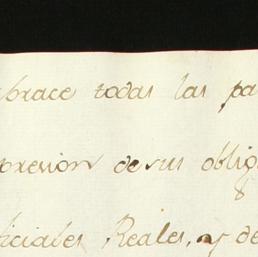 brace todas las pa
presion de sus oblig
ficiales Reales, y de